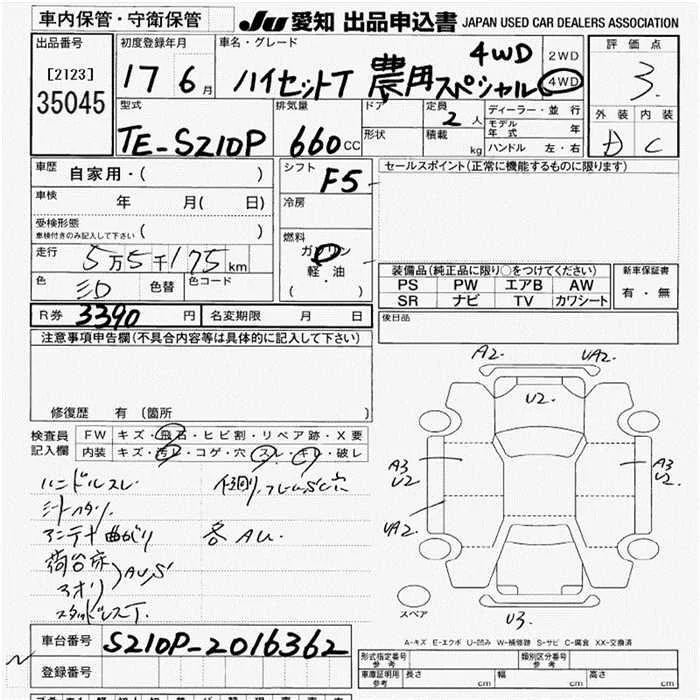 車内保管・守衛保管
JU 愛知 出品申込書 JAPAN USED CAR DEALERS ASSOCIATION
出品番号
[2123]
35045
初度登録年月
17 6月
車名・グレード
ハイゼットT 農用スペシャル 4WD
2WD
4WD
評価点
3.
外装 内装
D C
型式
TE-S210P
排気量
660cc
ドア
形状
定員
2人
積載
kg
ディーラー・並行
モデル年式 年
ハンドル 左・右
車歴
自家用・( )
車検
年 月( 日)
受検形態
車検付きのみ記入して下さい ( )
走行
5万5千175km
色
色替
色コード
シフト
F5
冷房
燃料
ガソリン
軽・油
( )
セールスポイント(正常に機能するものに限ります)
装備品(純正品に限り○をつけてください)
PS PW エアB AW
SR ナビ TV カワシート
新車保証書
有・無
R券 3390円
名変期限 月 日
後日品
注意事項申告欄(不具合内容等は具体的に記入して下さい)
修復歴 有(箇所
検査員
記入欄
FW キズ・飛石・ヒビ割・リペア跡・X要
内装 キズ・汚レ・コゲ・穴・スレ・キレ・破レ
ハンドルスレ
アンテナ曲がり
荷台床
アオリ
AU,S
スタッドレスT.
各AU.
A2.
UA2.
U2.
A3
U2
A3
U2.
UA2.
U3.
スペア
A-キズ E-エクボ U-凹み W-補修跡 S-サビ C-腐食 XX-交換済
車台番号
S210P-2016362
登録番号
形式指定番号
参考
類別区分番号
参考
車庫証明用
参考
長さ cm
幅 cm
高さ cm